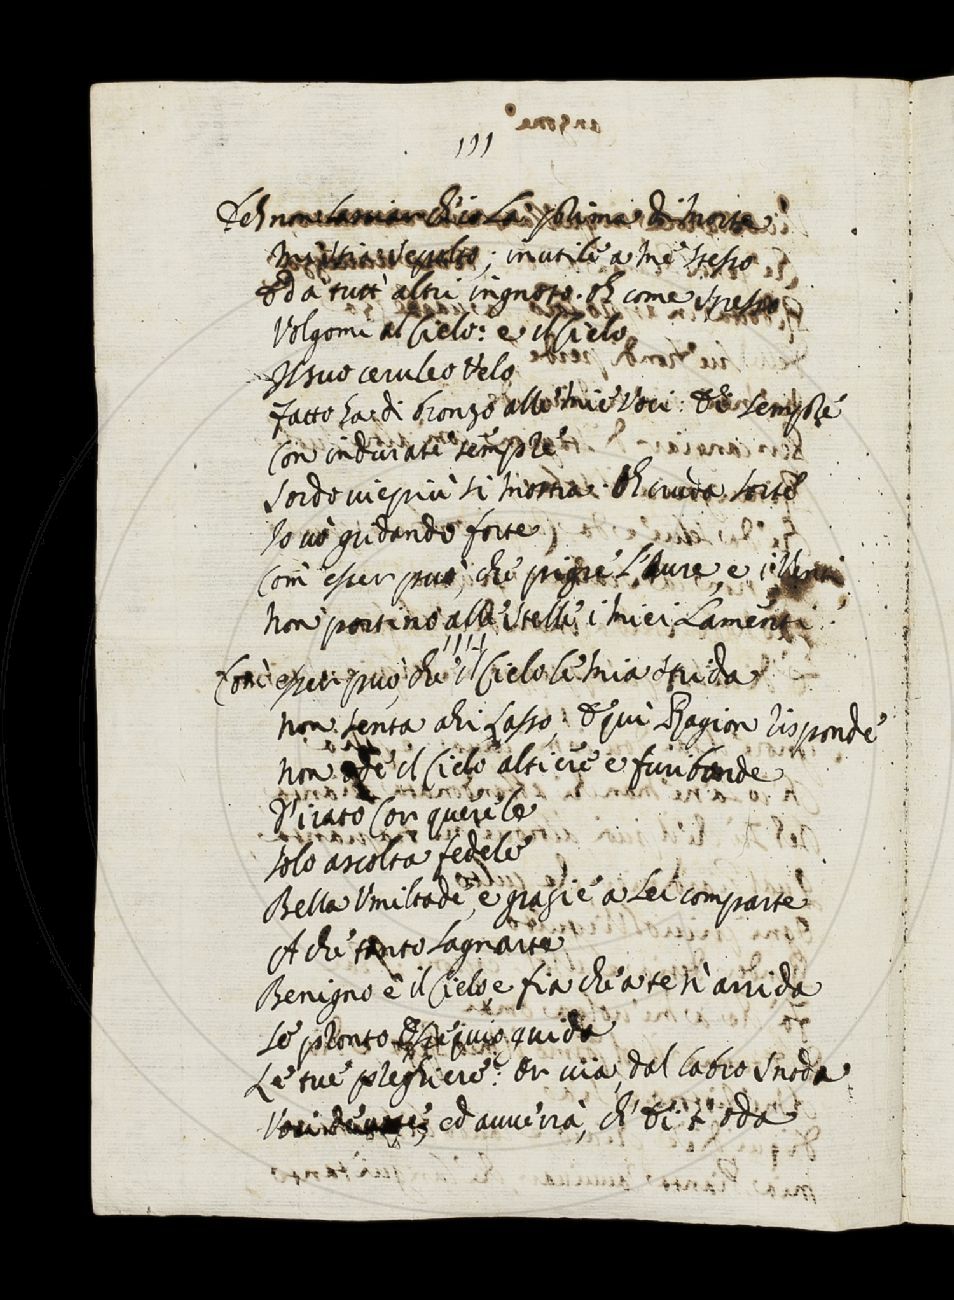 111
Deh non lasciar ch'io la prima di morte
Mi stia sepolto, inutile a me stesso
Ed a tutt'altri ingnoto. Oh come spesso
Volgomi al Cielo: e il Cielo
Il suo ceruleo velo
Fatto ha di bronzo alle mie voci: E sempre
Con indurate tempre
Sordo viepiù si mostra. Oh cruda sorte
Io vò gridando forte
Com' esser può, che pigre l'Aure, e i Venti
Non portino alle Stelle i miei Lamenti
1111
Com' esser può, che il Cielo le mia strida
Non senta ahi Lasso: E qui Ragion risponde
Non ode il Cielo altiere e furibonde
D'irato Cor querele
Solo ascolta fedele
Bella Umiltade, e grazie a Lei comparte
A che tanto Lagnarte
Benigno è il Cielo, e fia ch'a te si arrida
Se pronto Ossequio guida
Le tue preghiere: Or via, dal labro snoda
Voci devote, ed avverrà, ch' Ei t'oda